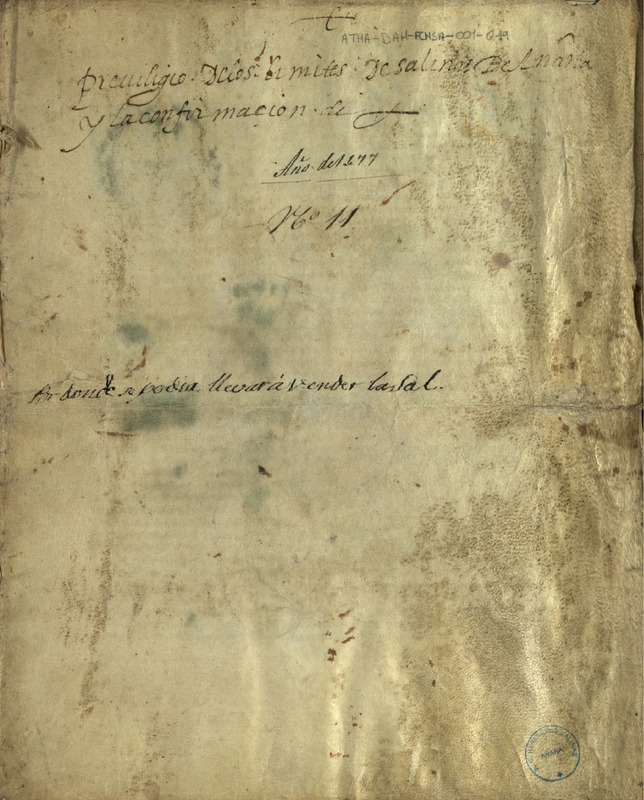 ATHA-DAH-FCHSA-001-019
Preuiligio Delos limites De salinas De Añana
y la confirmacion de
Año de 1277
Nº 11
Por donde se podia llevar á vender la sal.
AÑANA